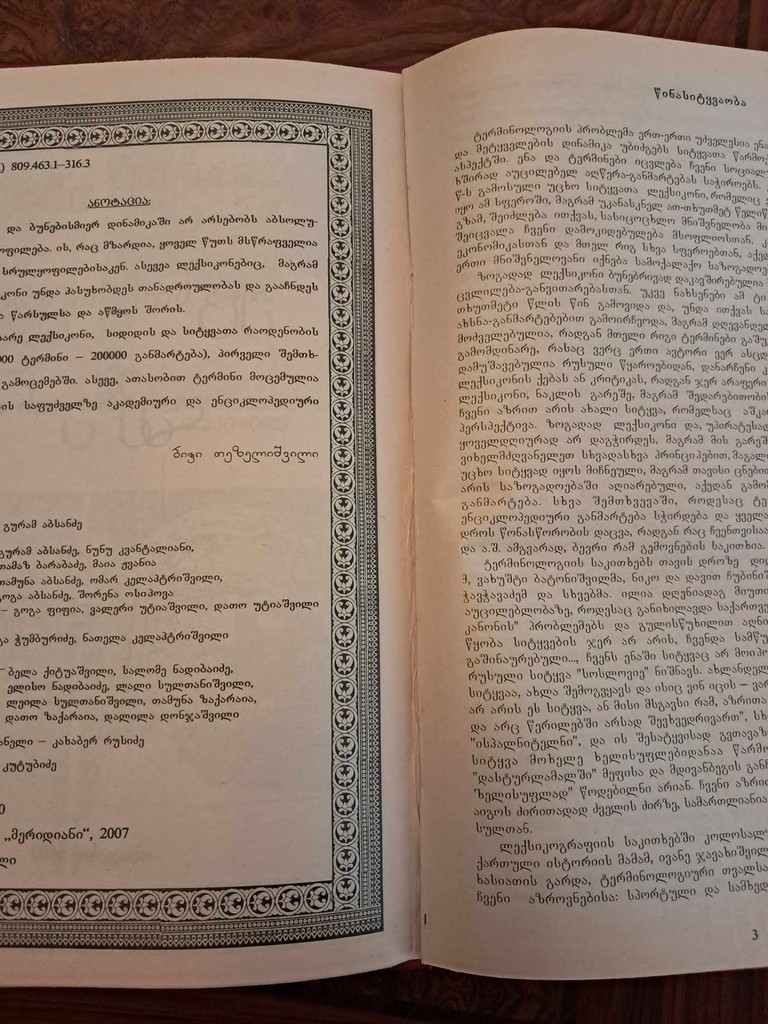 ) 809.463.1–316.3
ანოტაცია:
და ბუნებისმიერ დინამიკაში არ არსებობს აბსოლუ-
ოფილება. ის, რაც მზარდია, ყოველ წუთს მსწრაფველია
სრულყოფილებისაკენ. ასევეა ლექსიკონებიც, მაგრამ
კონი უნდა პასუხობდეს თანადროულობას და გააჩნდეს
ა წარსულსა და აწმყოს შორის.
არე ლექსიკონი, სიდიდის და სიტყვათა რაოდენობის
000 ტერმინი – 200000 განმარტება), პირველი შემთხ-
გამოცემებში. ასევე, ათასობით ტერმინი მოცემულია
ის საფუძველზე აკადემიური და ენციკლოპედიური
ბიჭი თეზელიშვილი
გურამ აბსანძე
გურამ აბსანძე, ნუნუ კვანტალიანი,
თამაზ ბარაბაძე, მაია ჟვანია
თამუნა აბსანძე, ომარ კელაპტრიშვილი,
გოგა აბსანძე, შორენა ოსიპოვა
– გოგა ფიფია, ვალერი უტიაშვილი, დათო უტიაშვილი
გა ჭუმბურიძე, ნათელა კელაპტრიშვილი
– ბელა ქიტუაშვილი, სალომე ნადიბაიძე,
ელისო ნადიბაიძე, ლალი სულთანიშვილი,
ლეილა სულთანიშვილი, თამუნა ზაქარაია,
დათო ზაქარაია, დალილა დონჯაშვილი
ანელი – კახაბერ რუსიძე
კუტუბიძე
0
„მერიდიანი“, 2007
ლი
წინასიტყვაობა
ტერმინოლოგიის პრობლემა ერთ-ერთი უძველესია ენა
და მეტყველების დინამიკა უბიძგებს სიტყვათა წარმო
ასპექტში. ენა და ტერმინები იცვლება ჩვენი სოციალ
ხშირად აუცილებელ აღწერა-განმარტებას საჭიროებს.
წ-ს გამოსული უცხო სიტყვათა ლექსიკონი, რომელიც
იყო ამ სფეროში, მაგრამ უკანასკნელ ათ-თხუთმეტ წელიწ
გზამ, შეიძლება ითქვას, სასიცოცხლო მნიშვნელობა მი
შეიცვალა ჩვენი დამოკიდებულება მსოფლიოსთან.
ეკონომიკასთან და მთელ რიგ სხვა სფეროებთან, აქედ
ერთი მნიშვნელოვანი იქნება სამოქალაქო საზოგადოე
ზოგადად ლექსიკონი ბუნებრივად დაკავშირებულია
ცვლილება-განვითარებასთან. უკვე ნახსენები ამ ტი
თხუთმეტი წლის წინ გამოვიდა და, უნდა ითქვას სა
ახსნა-განმარტებებით გამოირჩეოდა, მაგრამ დღევანდელ
მოძველებულია, რადგან მთელი რიგი ტერმინები გაჩ
გამომდინარე, რასაც ვერც ერთი ავტორი ვერ ასცდ
დამუშავებულია რუსული წყაროებიდან, დანარჩენი კ
ლექსიკონის ქებას ან კრიტიკას, რადგან ჯერ არაფერი
ლექსიკონი, ნაკლის გარეშე, მაგრამ შედარებითობის
ჩვენი აზრით არის ახალი სიტყვა, რომელსაც აშკა
პერსპექტივა. ზოგადად ლექსიკონი და, უპირატესად
ყოველდღიურად არ დაგჭირდეს, მაგრამ მის გარეშ
ვიხელმძღვანელეთ სხვადასხვა პრინციპებით, მაგალ
უცხო სიტყვად იყოს მიჩნეული, მაგრამ თავისი ცნებით
არის საზოგადოებაში აღიარებული, აქედან გამო
განმარტება. სხვა შემთხვევაში, როდესაც ტე
ენციკლოპედიური განმარტება სჭირდება და ყველა
დროს წონასწორობის დაცვა, რადგან რაც ჩვენთვისაა
და ა.შ. ამგვარად, ბევრი რამ გემოვნების საკითხია.
ტერმინოლოგიის საკითხებს თავის დროზე დიდ
მ, ვახუშტი ბატონიშვილმა, ნიკო და დავით ჩუბინიშ
ჭავჭავაძემ და სხვებმა. ილია დღენიადაგ მიუთი
აუცილებლობაზე, როდესაც განიხილავდა საქართვე
კანონის" პრობლემებს და გულისწუხილით აღნი
წყობა სიტყვების ჯერ არ არის, ჩვენდა სამწუ
გაშინაურებული..., ჩვენს ენაში სიტყვაც არ მოიპო
რუსული სიტყვა "სოსლოვიე" ნიშნავს. ახლანდელ
სიტყვაა, ახლა შემოგვყავს და ისიც ვინ იცის – ვარ
არ არის ეს სიტყვა, ან მისი მსგავსი რამ, აზრითა
და არც წერილებში არსად შევხვედრივართ", სხ
"ისპალნიტელნი", და ის შესატყვისად გვთავაზ
სიტყვა მოხელე ხელისუფლებიდანაა წარმო
"დასტურლამალში" მეფისა და მდივანბეგის განჩ
'ხელისუფლად" წოდებილნი არიან. ჩვენი აზრი
აიგოს ძირითადად ძველის ძირზე, სამართლიანია
სულთან.
ლექსიკოგრაფიის საკითხებში კოლოსალ
ქართული ისტორიის მამამ, ივანე ჯავახიშვილ
ხასიათის გარდა, ტერმინოლოგიური თვალსა
ჩვენი აზროვნებისა: სპორტული და სამხედ
3